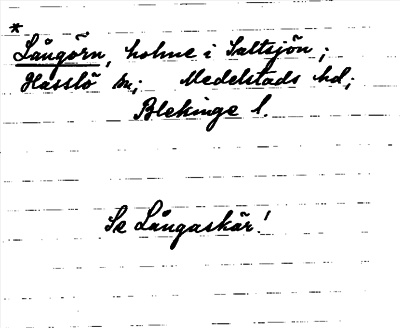 *
Långörn, holme i Saltsjön;
Hasslö sn; Medelstads hd;
Blekinge l.
Se Långaskär!